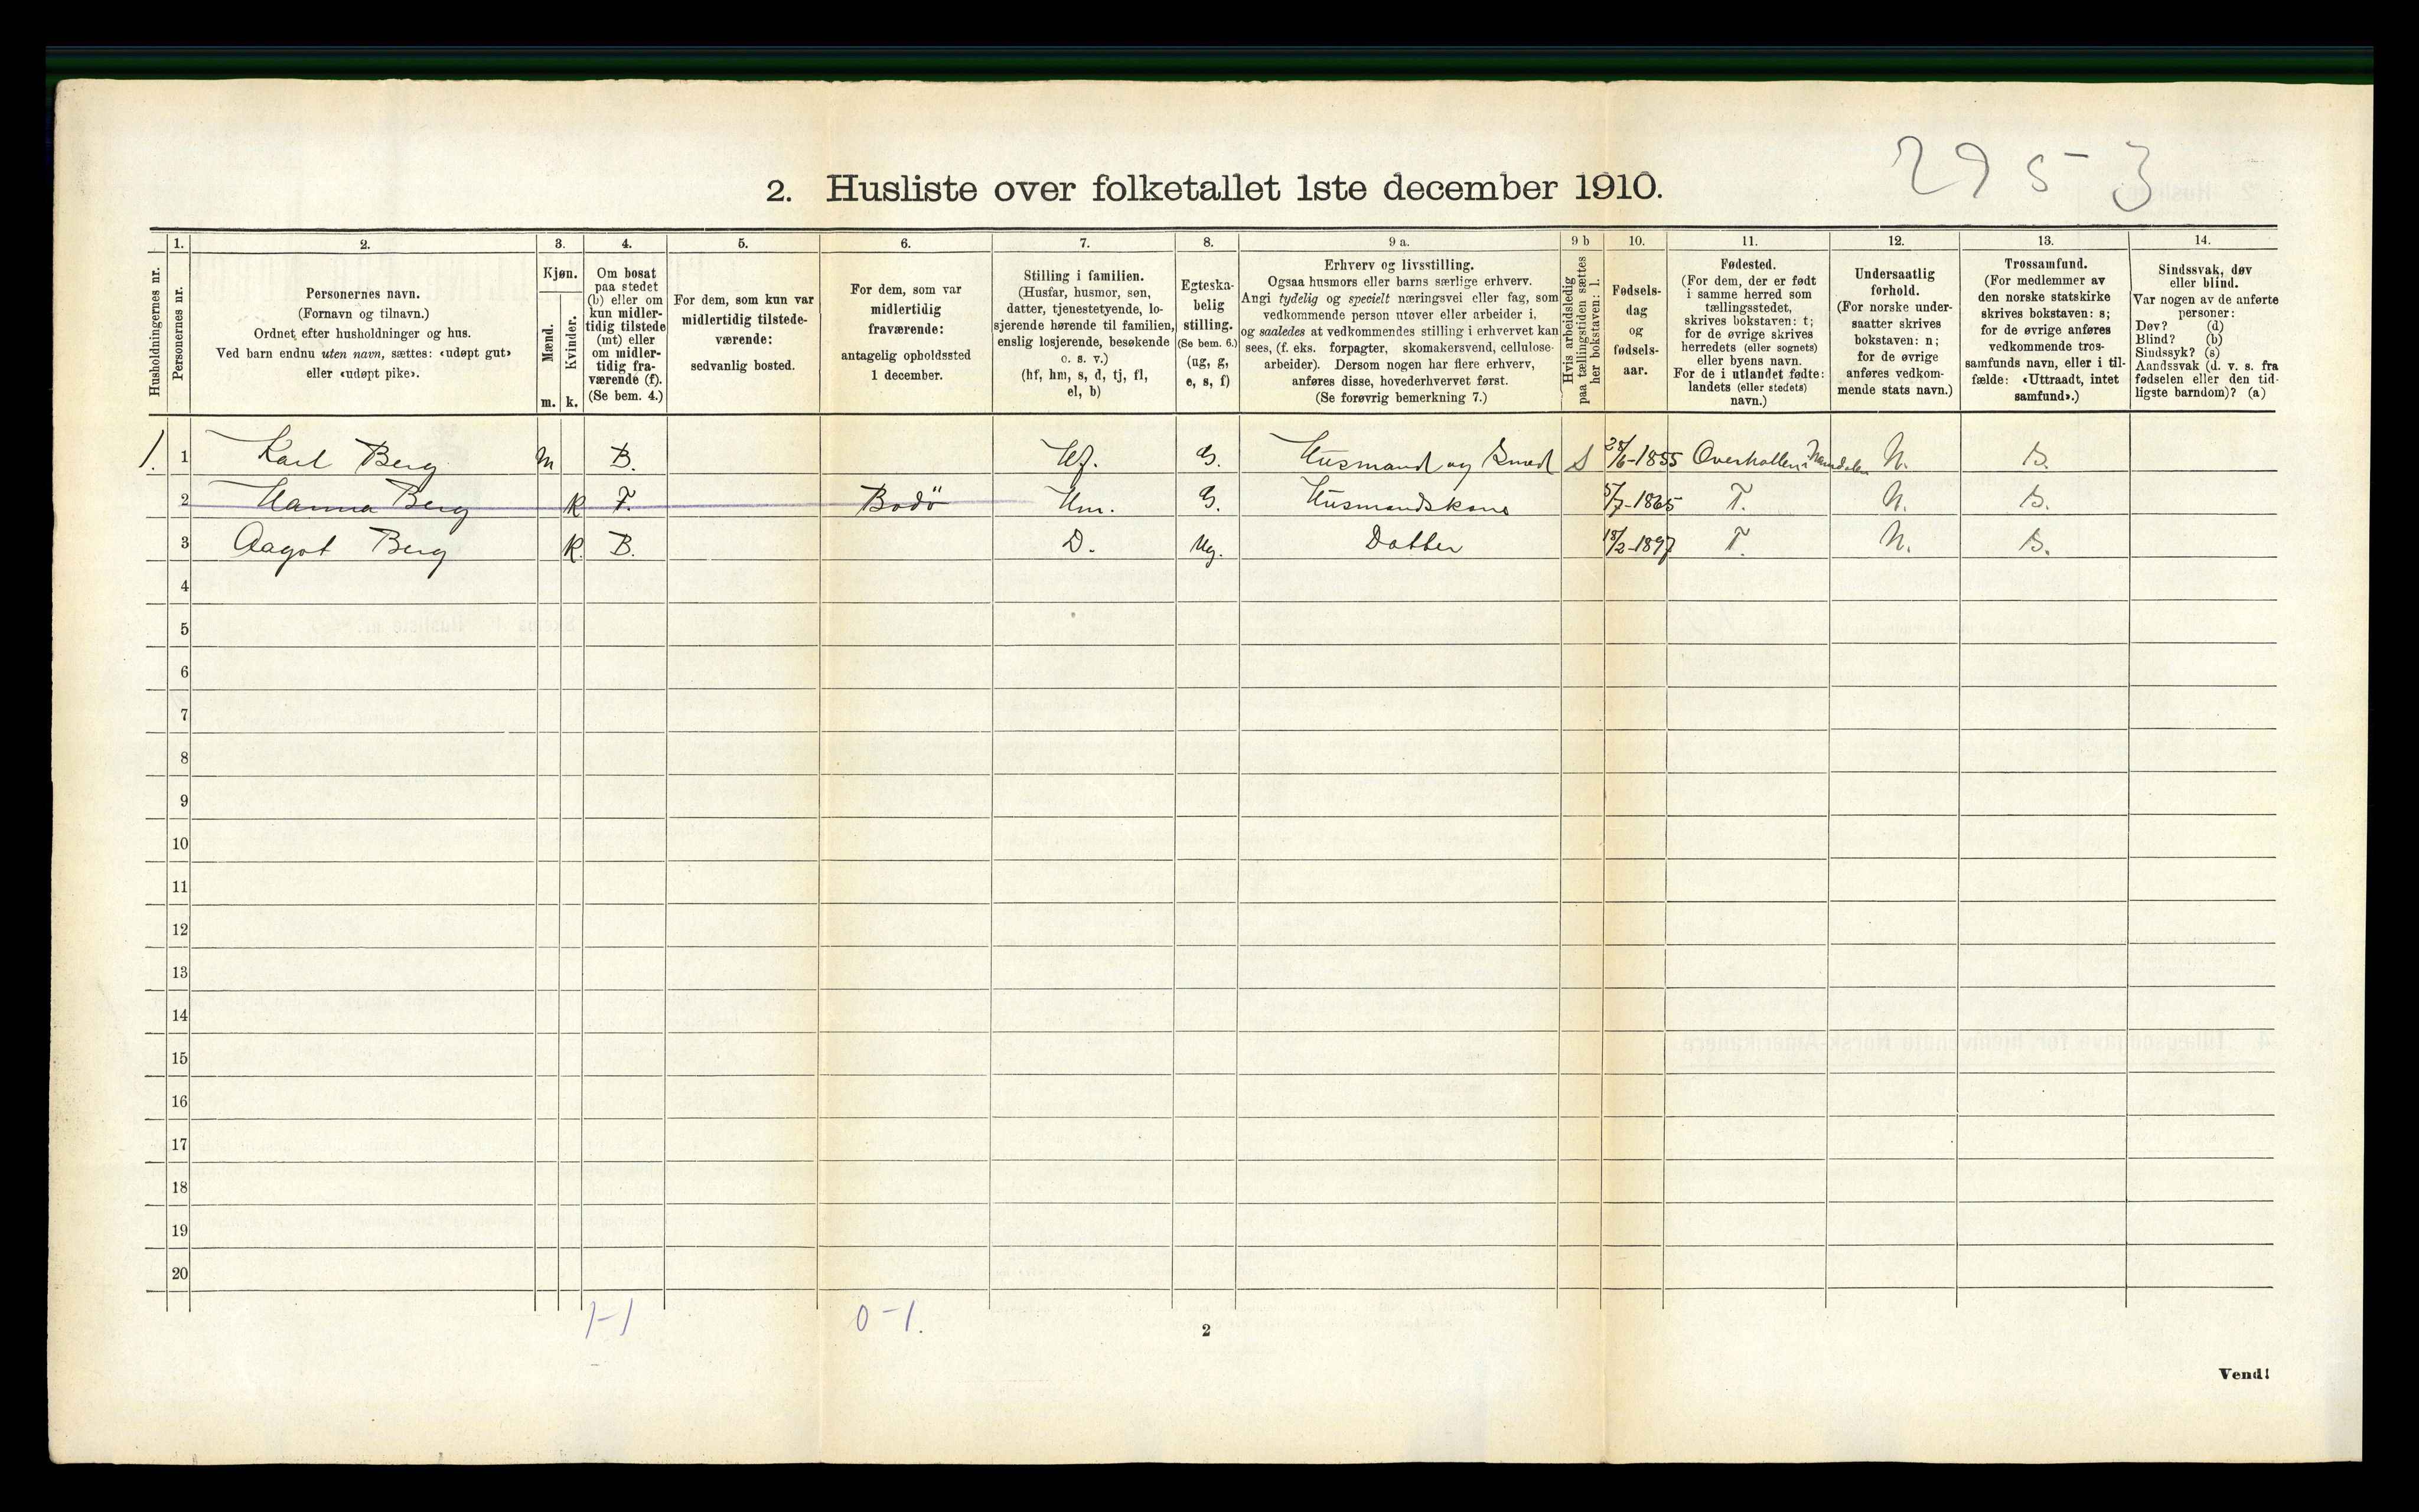 2953
2. Husliste over folketallet 1ste december 1910.
1. 2. 3. 4. 5. 6. 7. 8. 9 a. 9 b 10. 11. 12. 13. 14.
Husholdningernes nr.
Personernes nr.
Personernes navn.
(Fornavn og tilnavn.)
Ordnet efter husholdninger og hus.
Ved barn endnu uten navn, sættes: «udøpt gut»
eller «udøpt pike».
Kjøn.
Mænd.
Kvinder.
m. k.
Om bosat
paa stedet
(b) eller om
kun midler-
tidig tilstede
(mt) eller
om midler-
tidig fra-
værende (f).
(Se bem. 4.)
For dem, som kun var
midlertidig tilstede-
værende:
sedvanlig bosted.
For dem, som var
midlertidig
fraværende:
antagelig opholdssted
1 december.
Stilling i familien.
(Husfar, husmor, søn,
datter, tjenestetyende, lo-
sjerende hørende til familien,
enslig losjerende, besøkende
o. s. v.)
(hf, hm, s, d, tj, fl,
el, b)
Egteska-
belig
stilling.
(Se bem. 6.)
(ug, g,
e, s, f)
Erhverv og livsstilling.
Ogsaa husmors eller barns særlige erhverv.
Angi tydelig og specielt næringsvei eller fag, som
vedkommende person utøver eller arbeider i,
og saaledes at vedkommendes stilling i erhvervet kan
sees, (f. eks. forpagter, skomakersvend, cellulose-
arbeider). Dersom nogen har flere erhverv,
anføres disse, hovederhvervet først.
(Se forøvrig bemerkning 7.)
Hvis arbeidsledig
paa tællingstiden sættes
her bokstaven: l.
Fødsels-
dag
og
fødsels-
aar.
Fødested.
(For dem, der er født
i samme herred som
tællingsstedet,
skrives bokstaven: t;
for de øvrige skrives
herredets (eller sognets)
eller byens navn.
For de i utlandet fødte:
landets (eller stedets)
navn.)
Undersaatlig
forhold.
(For norske under-
saatter skrives
bokstaven: n;
for de øvrige
anføres vedkom-
mende stats navn.)
Trossamfund.
(For medlemmer av
den norske statskirke
skrives bokstaven: s;
for de øvrige anføres
vedkommende tros-
samfunds navn, eller i til-
fælde: «Uttraadt, intet
samfund».)
Sindssvak, døv
eller blind.
Var nogen av de anførte
personer:
Døv? (d)
Blind? (b)
Sindssyk? (s)
Aandssvak (d. v. s. fra
fødselen eller den tid-
ligste barndom)? (a)
1. 1 Karl Berg m B. Hf. G. Husmand og Smed S 28/6-1855 Overhallen i Namdalen N. S.
2 Hanna Berg K F. Bodö Hm. G. Husmandskone 5/7-1865 T. N. S.
3 Aagot Berg K. B. D. Ug. Datter 18/2-1897 T. N. S.
4
5
6
7
8
9
10
11
12
13
14
15
16
17
18
19
20
1-1 0-1.
2
Vend!